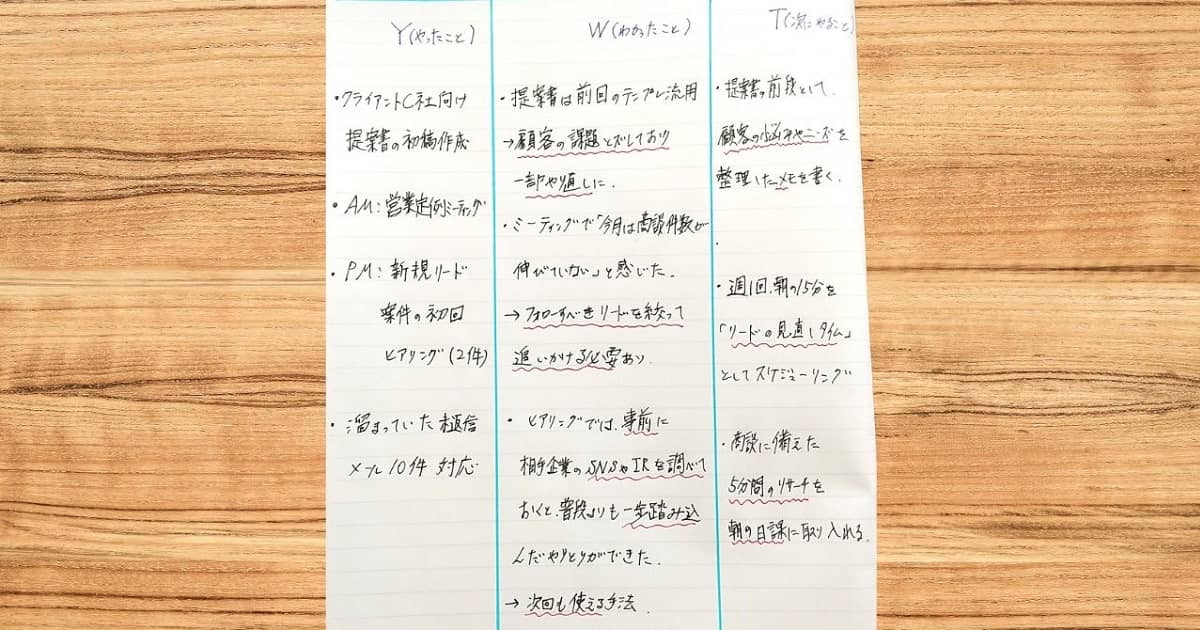 Y(やったこと)
・クライアントC社向け
提案書の初稿作成
・AM：営業定例ミーティング
・PM：新規リード
案件の初回
ヒアリング(2件)
・溜まっていた未返信
メール10件対応
W(わかったこと)
・提案書は前回のテンプレ流用
→顧客の課題とズレており
一部やり直しに.
・ミーティングで「今月は商談件数が
伸びていない」と感じた.
→フォローすべきリードを絞って
追いかける必要あり.
・ヒアリングでは、事前に
相手企業のSNSやIRを調べて
おくと、普段よりも一歩踏み込
んだやりとりができた.
→次回も使える手法.
T(次にやること)
・提案書の前段として、
顧客の悩みやニーズを
整理したメモを書く.
・週1回、朝の15分を
「リードの見直しタイム」
としてスケジューリング
・商談に備えた
5分間のリサーチを
朝の日課に取り入れる.